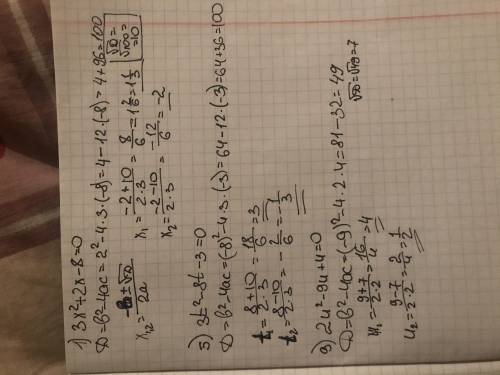 1) 3x²+2x-8=0
D=b²-4ac=2²-4·3·(-8)=4-12·(-8)=4+96=100
x₁,₂=(-b±√D)/2a
√D=√100=10
x₁=(-2+10)/(2·3)=8/6=1 2/6=1 1/3
x₂=(-2-10)/(2·3)=-12/6=-2
5) 3t²-8t-3=0
D=b²-4ac=(-8)²-4·3·(-3)=64-12·(-3)=64+36=100
t₁=(8+10)/(2·3)=18/6=3
t₂=(8-10)/(2·3)=-2/6=-1/3
9) 2u²-9u+4=0
D=b²-4ac=(-9)²-4·2·4=81-32=49
√D=√49=7
u₁=(9+7)/(2·2)=16/4=4
u₂=(9-7)/(2·2)=2/4=1/2